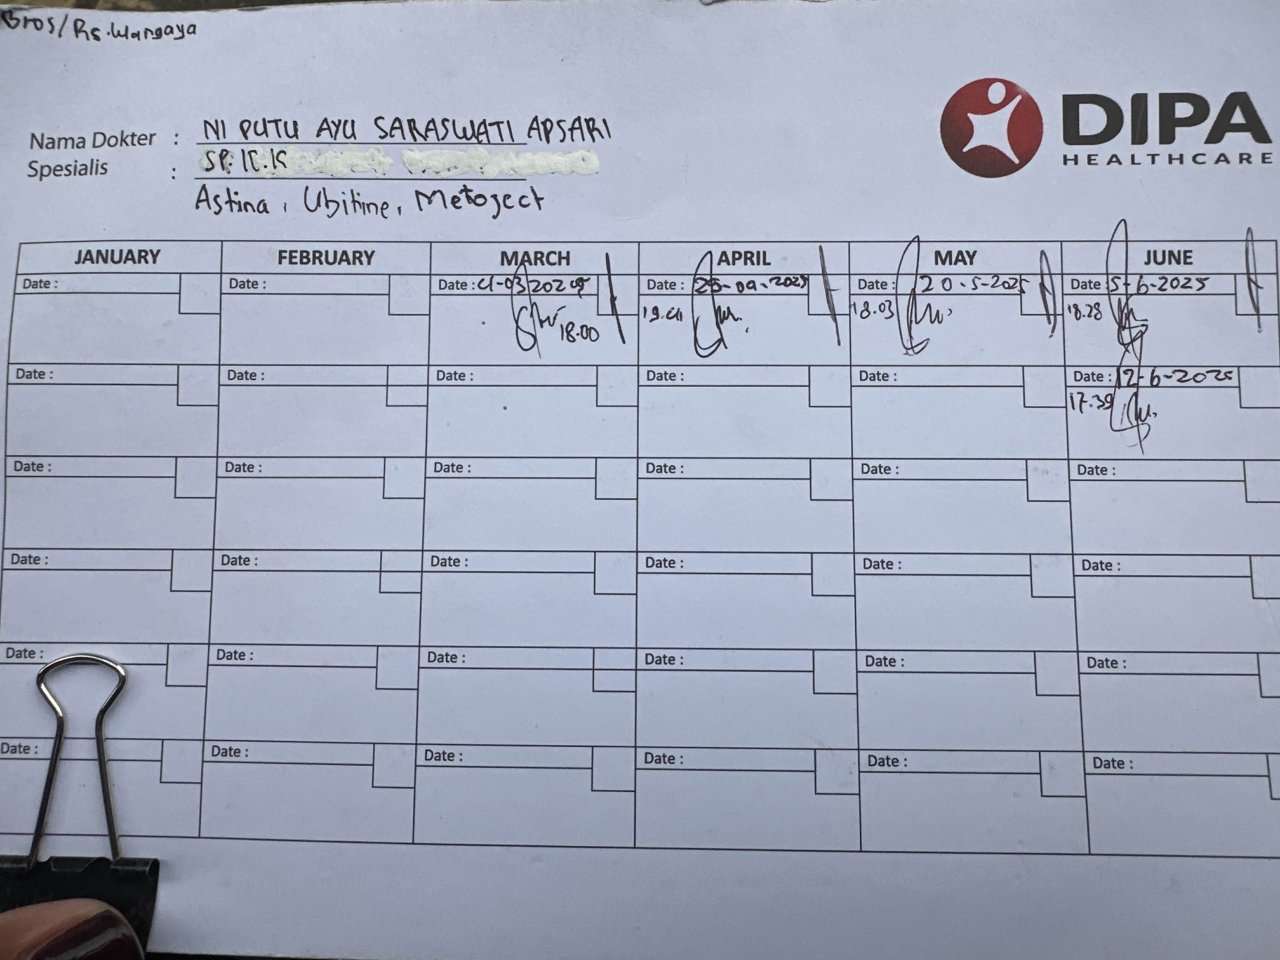 Bros/Rs.Wangaya
DIPA
HEALTHCARE
Nama Dokter : NI PUTU AYU SARASWATI APSARI
Spesialis : SP.K.K
Astina, Ubitine, Metoject
JANUARY FEBRUARY MARCH APRIL MAY JUNE
Date : Date : Date : 4-03 2025 Date : 25-04-2025 Date : 20.5-2025 Date : 5-6-2025
18.00 19.41 18.03 18.28
Date : Date : Date : Date : Date : Date : 12-6-2025
17.39
Date : Date : Date : Date : Date : Date :
Date : Date : Date : Date : Date : Date :
Date : Date : Date : Date : Date : Date :
Date : Date : Date : Date : Date : Date :